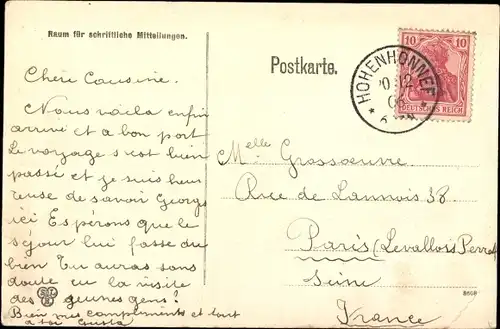 Raum für schriftliche Mitteilungen.
Chère Cousine.
Nous voila enfin
arrivé et a bon port
Le voyage s'est bien
passé et je suis heu
reuse de savoir Georges
ici Espérons que le
séjour lui fasse du
bien Tu auras sans
doute eu la visite
des jeunes gens!
Bien mes compliments et tout
a toi
Postkarte.
10 10
DEUTSCHES REICH
HOHENHONNEF
12
Melle Grossoeuvre
Rue de Lannois 38
Paris (Levallois Perret
Seine
France